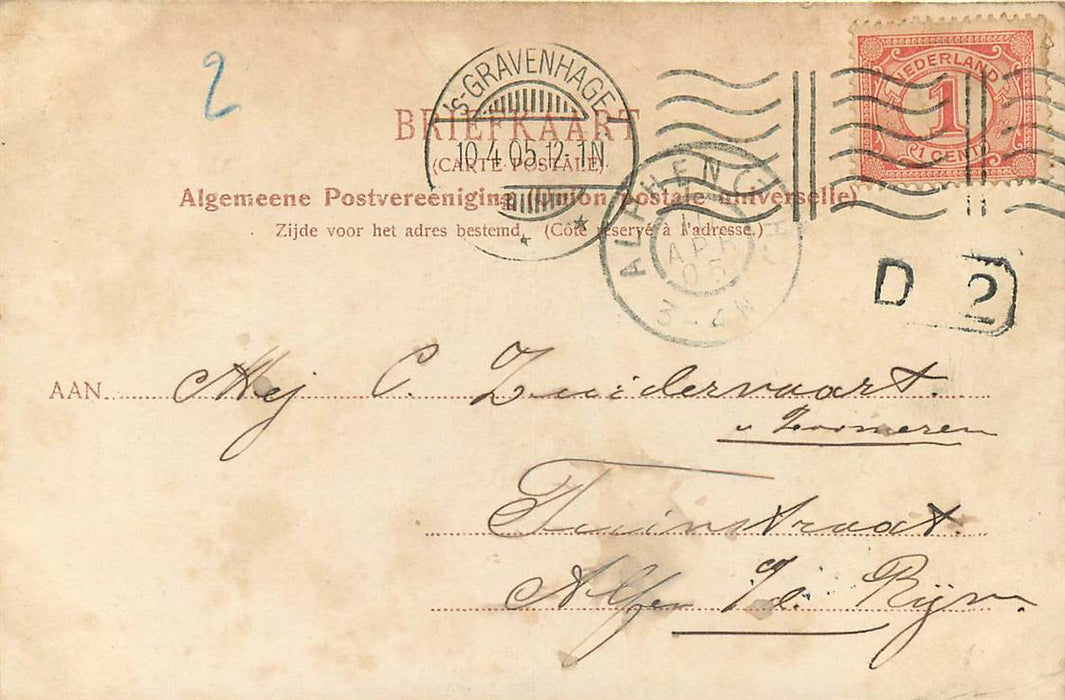 2
's-GRAVENHAGE
10.4.05.12-1N
NEDERLAND
1
CENT
BRIEFKAART
(CARTE POSTALE)
Algemeene Postvereeniging (Union postale universelle)
Zijde voor het adres bestemd. (Côté réservé à l'adresse.)
ALPHEN
APR
05
3-4N
D 2
AAN Mej C. Zuidervaart.
v Zoomeren
Tuinstraat.
Alfen a/d. Rijn.